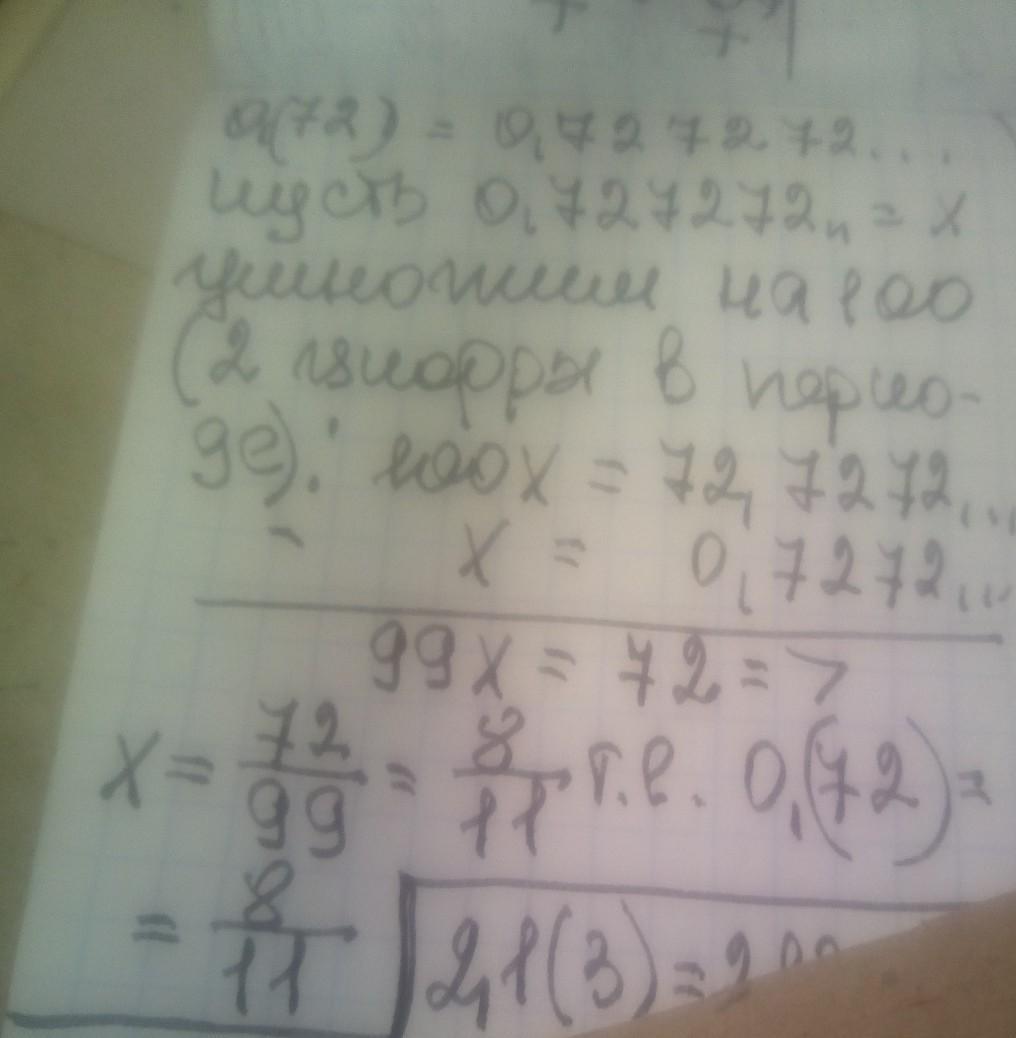 0,(72) = 0,72 72 72...
пусть 0,727272.. = x
умножим на 100
(2 цифры в перио-
де): 100x = 72, 7272...
- x = 0,7272...
99x = 72 =>
x = 72/99 = 8/11 т.е. 0,(72) =
= 8/11
2,1(3) =